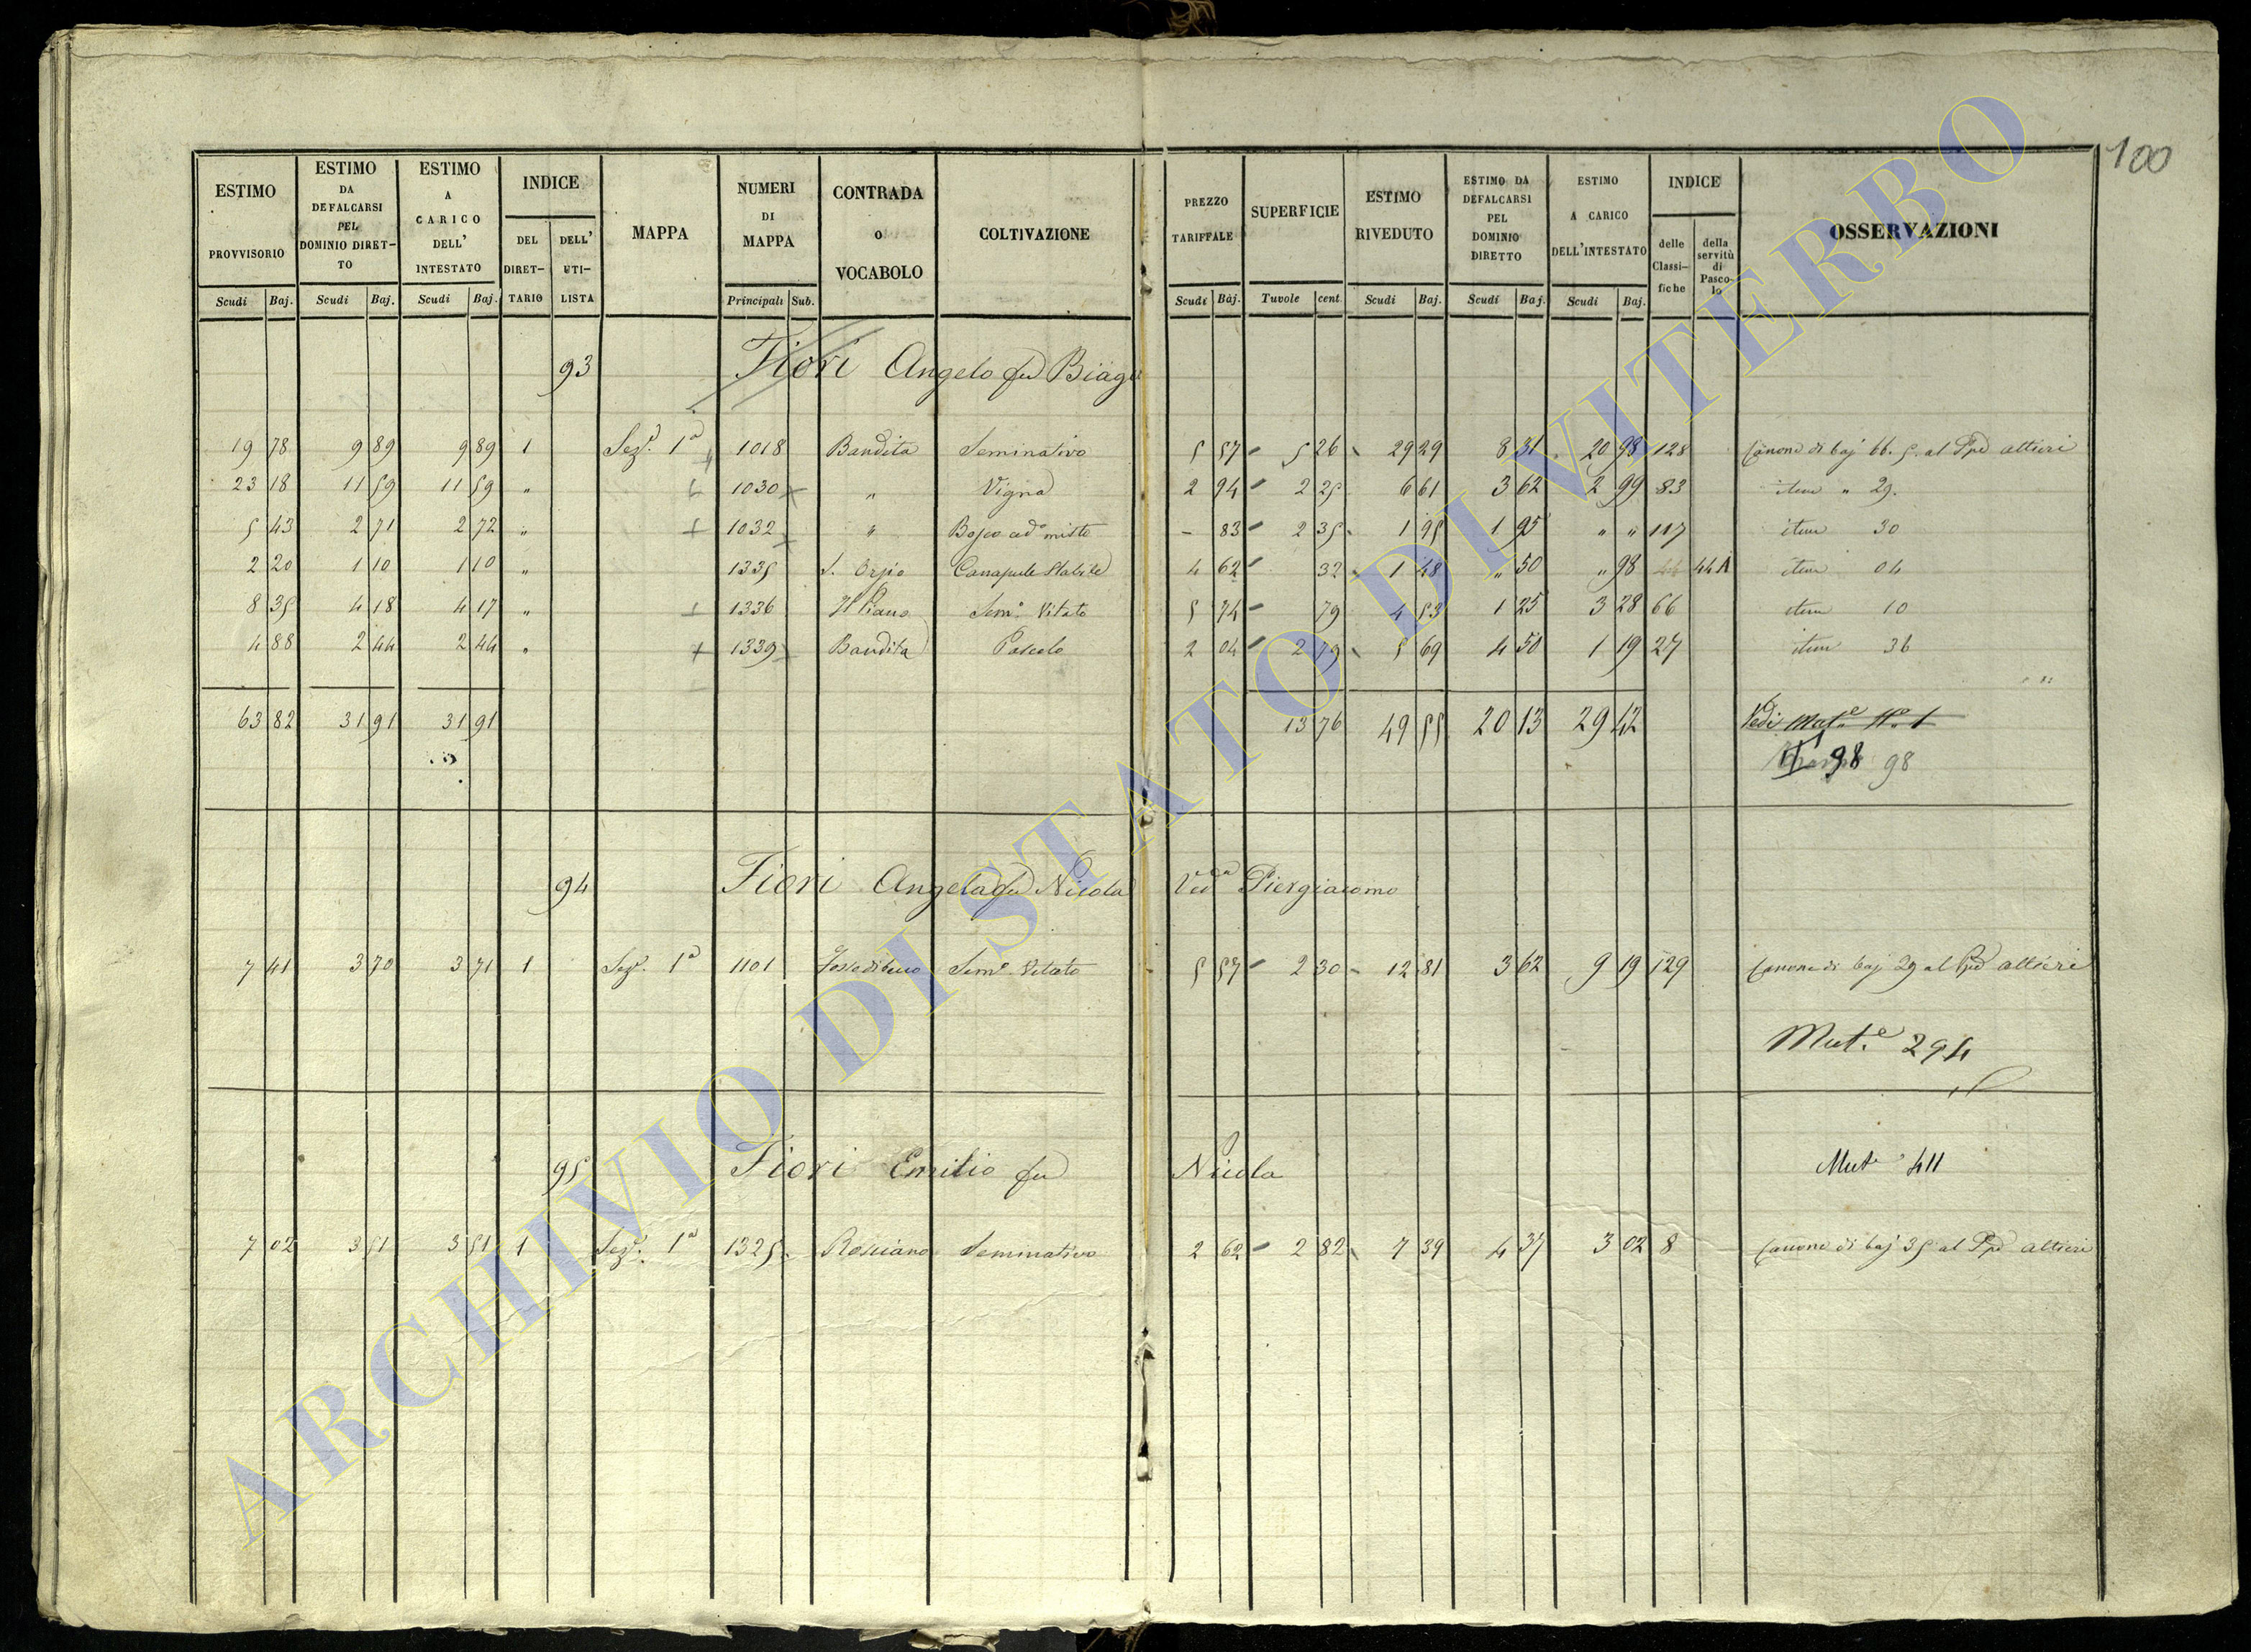 100
ESTIMO PROVVISORIO Scudi Baj. ESTIMO DA DEFALCARSI PEL DOMINIO DIRETTO Scudi Baj. ESTIMO A CARICO DELL' INTESTATO Scudi Baj. INDICE DEL DIRET- TARIO DELL' UTI- LISTA MAPPA NUMERI DI MAPPA Principali Sub. CONTRADA O VOCABOLO COLTIVAZIONE PREZZO TARIFFALE Scudi Baj. SUPERFICIE Tavole cent. ESTIMO RIVEDUTO Scudi Baj. ESTIMO DA DEFALCARSI PEL DOMINIO DIRETTO Scudi Baj. ESTIMO A CARICO DELL'INTESTATO Scudi Baj. INDICE delle Classi- fiche della servitù di Pasco- lo OSSERVAZIONI
93 Fiori Angelo fu Biagio
19 78 9 89 9 89 1 Seze. 1a 1018 Bandita Seminativo 5 57 5 26 29 29 8 31 20 98 128 Canone di baj 66.5. al Ppe Altieri
23 18 11 59 11 59 " 1030 " Vigna 2 94 2 25 6 61 3 62 2 99 83 item " 29.
5 43 2 71 2 72 " 1032 " Bosco ced. misto - 83 2 35 1 95 1 95 " " 117 item 30
2 20 1 10 1 10 " 1335 Canapule Stabile 4 62 32 1 48 " 50 " 98 44A item 04
8 35 4 18 4 17 " 1336 Il Piano Semo. Vitato 5 74 79 4 53 1 25 3 28 66 item 10
4 88 2 44 2 44 " 1339 Bandita Pascolo 2 04 2 79 5 69 4 50 1 19 27 item 36
63 82 31 91 31 91 13 76 49 55 20 13 29 42 Vedi Mut.e N.o 1
98 98
94 Fiori Angela fu Nicola Veda Piergiacomo
7 41 3 70 3 71 1 Seze. 1a 1101 Semo. Vitato 5 57 2 30 12 81 3 62 9 19 129 Canone di baj 29 al Ppe Altieri
Mut.e 294
95 Fiori Emilio fu Nicola Mut. 411
7 02 3 51 3 51 1 Seze. 1a 1325 Rosciano Seminativo 2 62 2 82 7 39 4 37 3 02 8 Canone di baj 35 al Ppe Altieri
ARCHIVIO DI STATO DI VITERBO